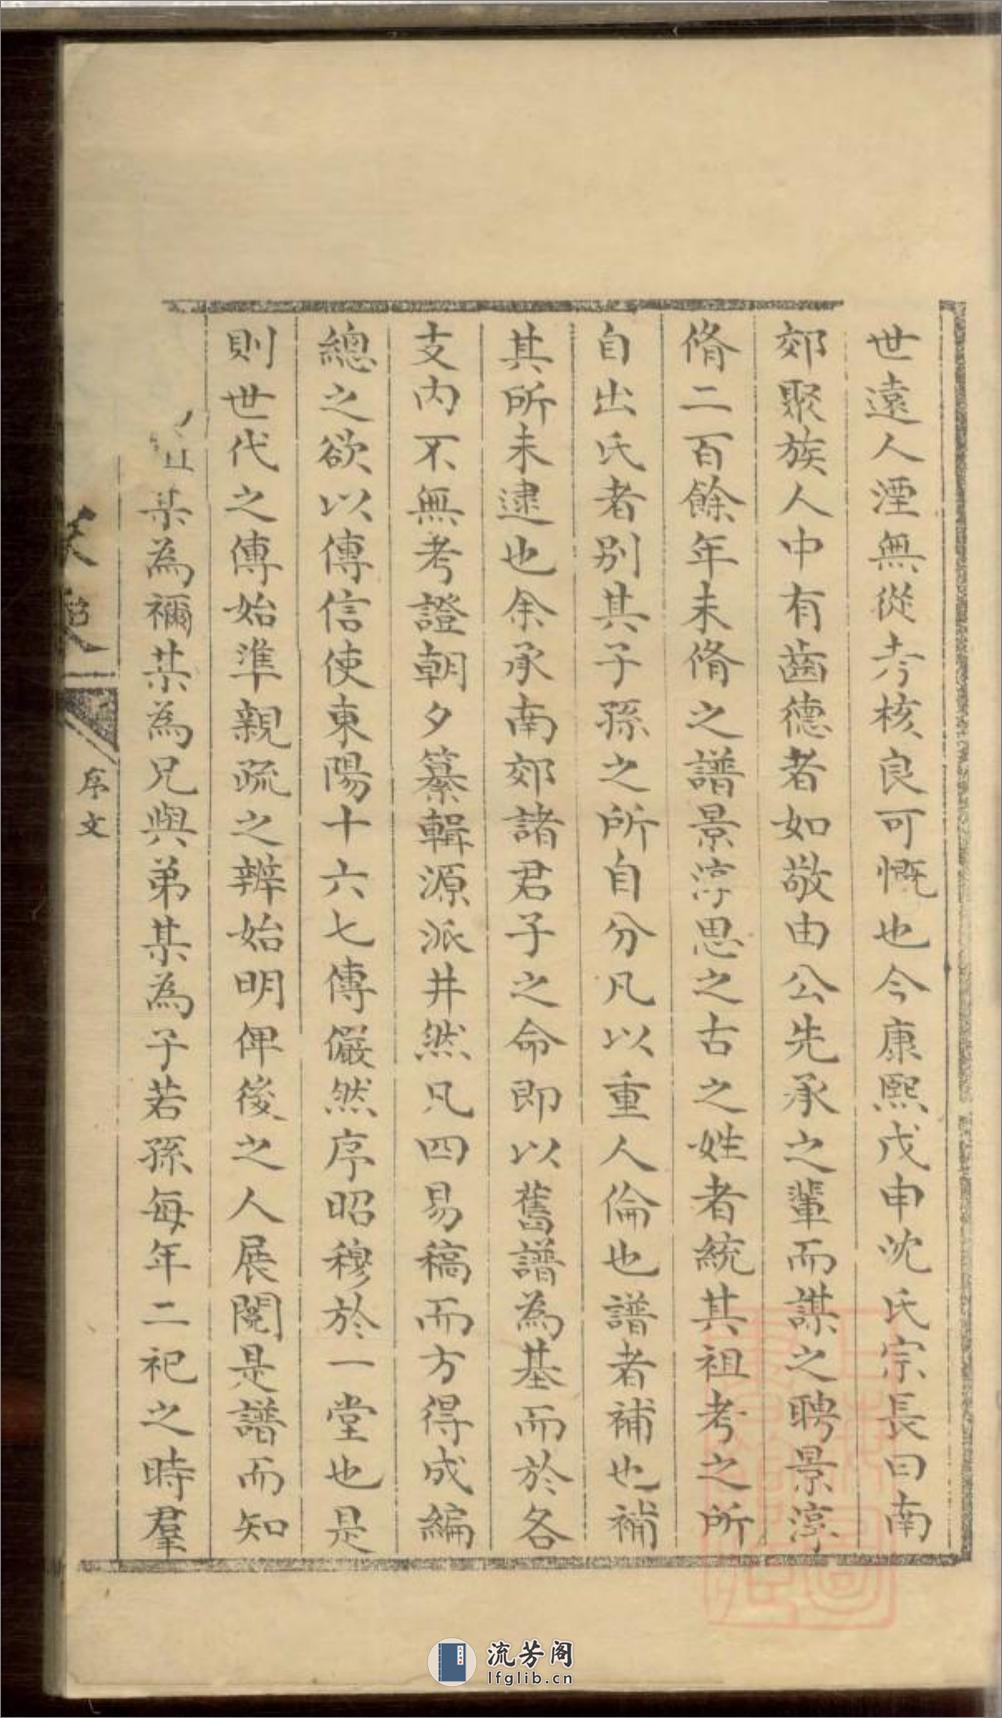 世遠人湮無從考核良可慨也今康熙戊申沈氏宗長曰南
郊聚族人中有齒德者如敬由公先承之輩而謀之聘景淳
脩二百餘年未脩之譜景淳思之古之姓者統其祖考之所
自出氏者别其子孫之所自分凡以重人倫也譜者補也補
其所未逮也余承南郊諸君子之命即以舊譜為基而於各
支内不無考證朝夕纂輯源派井然凡四易稿而方得成編
總之欲以傳信使東陽十六七傳儼然序昭穆於一堂也是
則世代之傳始準親疏之辨始明俾後之人展閱是譜而知
某為禰某為兄與弟某為子若孫每年二祀之時羣
序文
流芳阁
lfglib.cn